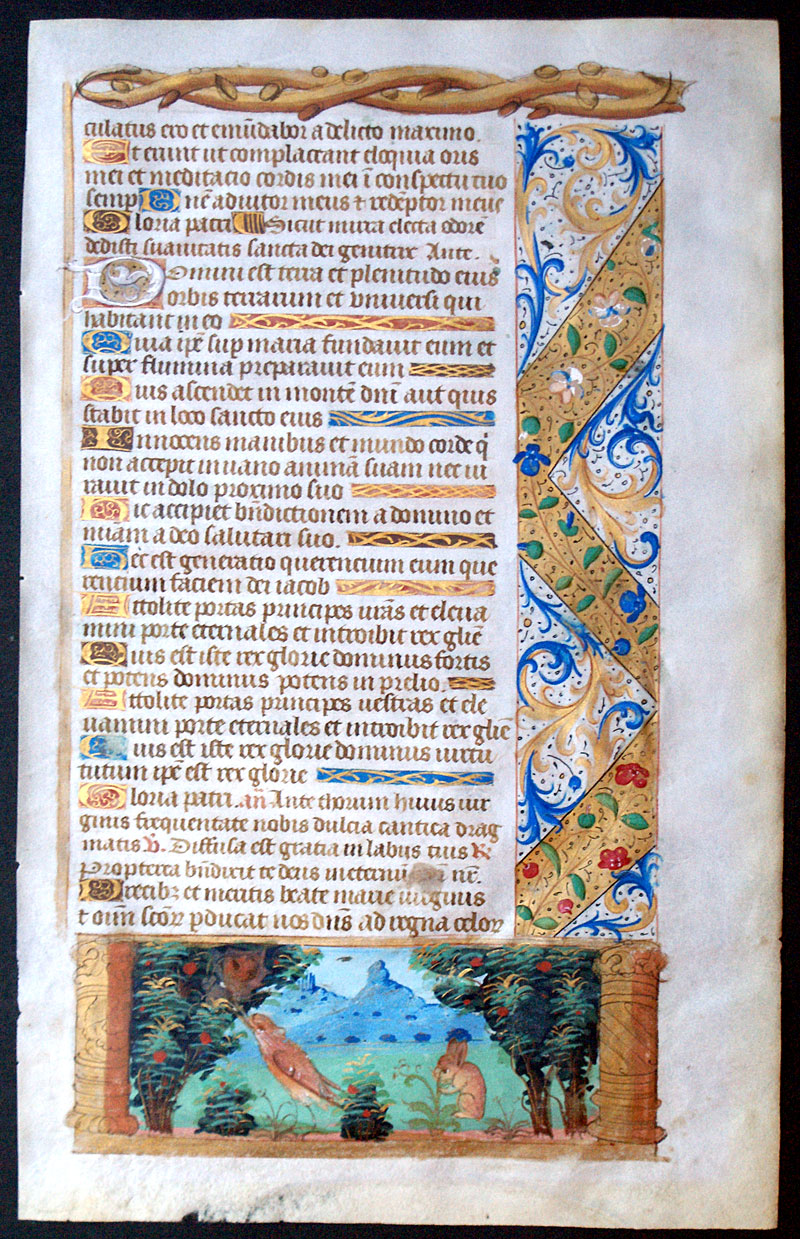 culatus ero et emūdabor a delicto maximo.
Et erunt ut complaceant eloquia oris
mei et meditacio cordis mei ī conspectu tuo
semp Dnē adiutor meus et redēptor meus
Gloria patri Sicut mirra electa odorē
dedisti suavitatis sancta dei genitrix Ante.
Domini est terra et plenitudo eius
orbis terrarum et universi qui
habitant in eo
Quia ipē sup maria fundavit eum et
super flumina preparavit eum
Quis ascendet in montē dnī aut quis
stabit in loco sancto eius
Innocens manibus et mundo corde q
non accepit in vano animā suam nec iu
ravit in dolo proximo suo
Hic accipiet bndictionem a domino et
miam a deo salutari suo.
Hec est generatio querencium eum que
rencium faciem dei iacob
Attolite portas principes vrās et eleva
mini porte eternales et introibit rex gliē
Quis est iste rex glorie dominus fortis
et potens dominus potens in prelio.
Attolite portas principes vestras et ele
vamini porte eternales et introibit rex gliē
Quis est iste rex glorie dominus virtu
tutum ipē est rex glorie
Gloria patri. an Ante thorum huius vir
ginis frequentate nobis dulcia cantica drag
matis V. Diffusa est gratia in labijs tuis R
Propterea bndixit te deus in eternum
Precibz et meritis beate marie virginis
t oim scōr pducat nos dns ad regna celor